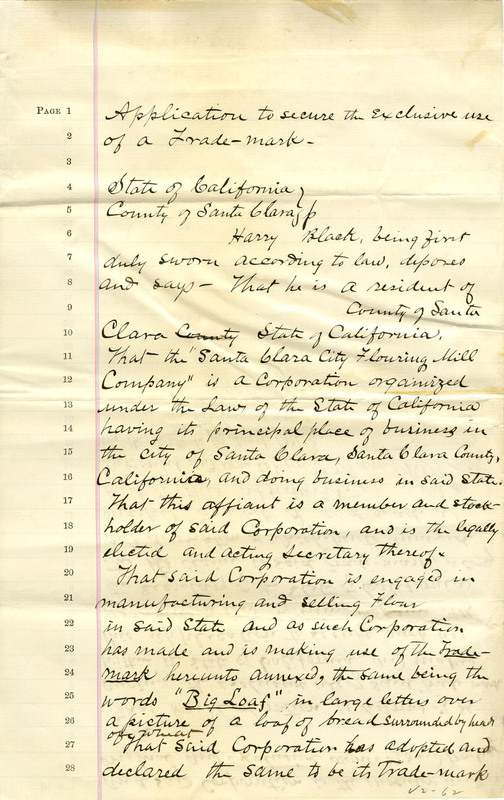 PAGE 1 Application to secure the Exclusive use
2 of a Trade-mark-
3
4 State of California,
5 County of Santa Clara
6 Harry Black, being first
7 duly sworn according to law, deposes
8 and says - That he is a resident of
9 County of Santa
10 Clara County State of California.
11 That the "Santa Clara City Flouring Mill
12 Company" is a Corporation organized
13 under the Laws of the State of California
14 having its principal place of business in
15 the city of Santa Clara, Santa Clara County,
16 California, and doing business in said State.
17 That this affiant is a member and stock-
18 holder of said Corporation, and is the legally
19 elected and acting Secretary thereof.
20 That said Corporation is engaged in
21 manufacturing and selling Flour
22 in said State and as such Corporation
23 has made and is making use of the trade-
24 mark hereunto annexed, the same being the
25 words "Big Loaf" in large letters over
26 a picture of a loaf of bread surrounded by heads
of wheat
27 That said Corporation has adopted and
28 declared the same to be its Trade-mark